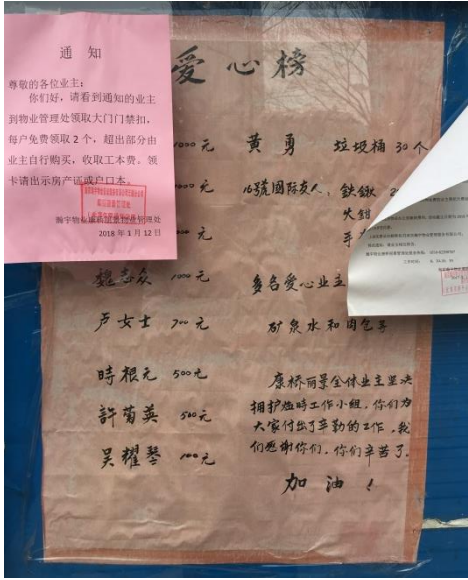 通知
尊敬的各位业主：
你们好，请看到通知的业主
到物业管理处领取大门门禁扣，
每户免费领取2个，超出部分由
业主自行购买，收取工本费。领
卡请出示房产证或户口本。
2018年1月12日
爱心榜
1000元
元
元
魏志众 1000元
卢女士 700元
時根元 500元
許菊英 500元
吴耀琴 100元
黄勇 垃圾桶30个
16號国际友人，鉄鍬
火钳
多名爱心业主
矿泉水和肉包子
康桥丽景全体业主坚决
拥护临時工作小组，你们为
大家付出了辛勤的工作，我
们感谢你们，你们辛苦了。
加油！